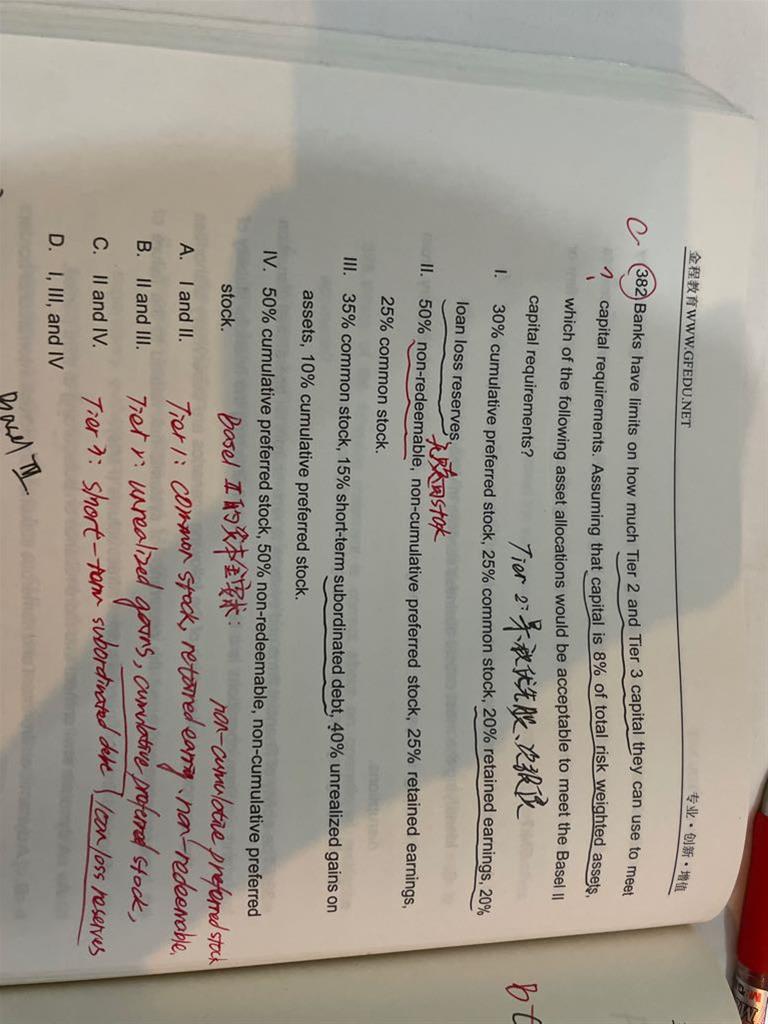 金程教育WWW.GFEDU.NET 专业·创新·增值
C 382 Banks have limits on how much Tier 2 and Tier 3 capital they can use to meet
? capital requirements. Assuming that capital is 8% of total risk weighted assets,
which of the following asset allocations would be acceptable to meet the Basel II
capital requirements?
Tier 2:
I. 30% cumulative preferred stock, 25% common stock, 20% retained earnings, 20%
loan loss reserves.
stock
II. 50% non-redeemable, non-cumulative preferred stock, 25% retained earnings,
25% common stock.
III. 35% common stock, 15% short-term subordinated debt, 40% unrealized gains on
assets, 10% cumulative preferred stock.
IV. 50% cumulative preferred stock, 50% non-redeemable, non-cumulative preferred
stock.
Basel II 的资本金要求:
non-cumulative preferred stock
A. I and II.
Tier 1: common stock, retained earing, non-redeemable,
B. II and III.
Tier 2: unrealized gains, cumulative preferred stock,
C. II and IV.
loan loss reserves
Tier 3: short-term subordinated debt
D. I, III, and IV
Basel III